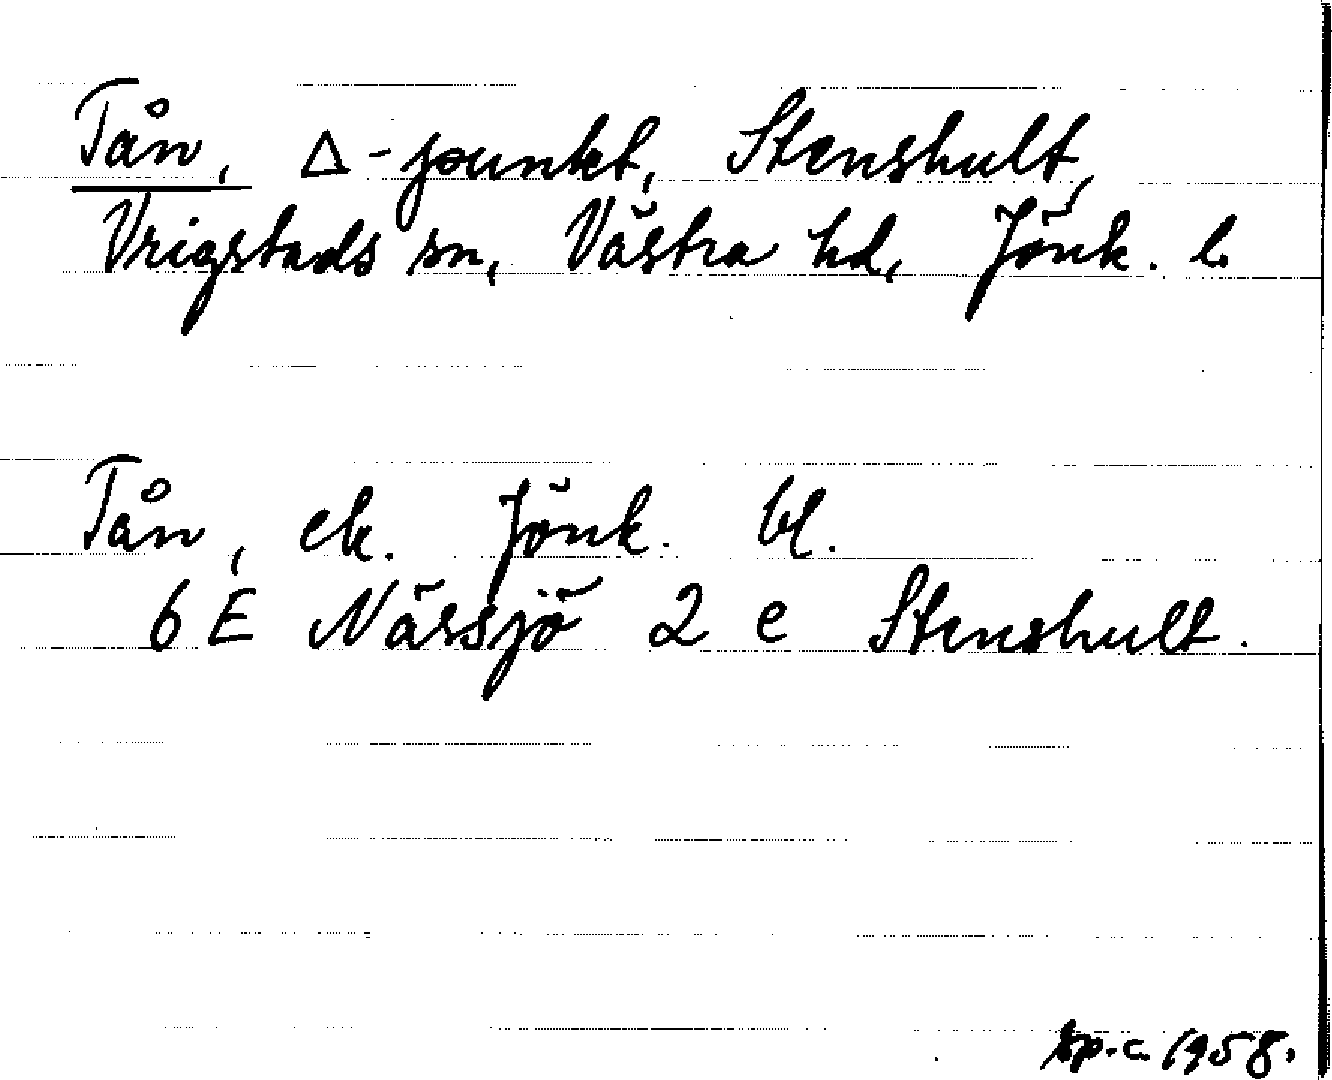 Tån, Δ-punkt, Stenshult,
Vrigstads sn, Västra hd, Jönk. l.
Tån, ek. Jönk. bl.
6 E Nässjö 2 e Stenshult.
1958.